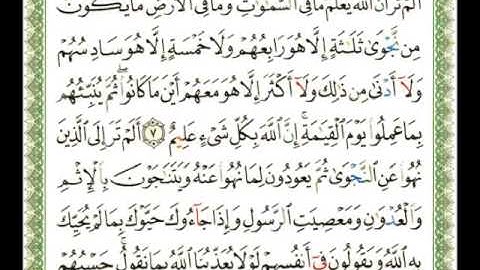 أَلَمْ تَرَ أَنَّ ٱللَّهَ يَعْلَمُ مَا فِي ٱلسَّمَٰوَٰتِ وَمَا فِي ٱلْأَرْضِ مَا يَكُونُ
مِن نَّجْوَىٰ ثَلَٰثَةٍ إِلَّا هُوَ رَابِعُهُمْ وَلَا خَمْسَةٍ إِلَّا هُوَ سَادِسُهُمْ
وَلَآ أَدْنَىٰ مِن ذَٰلِكَ وَلَآ أَكْثَرَ إِلَّا هُوَ مَعَهُمْ أَيْنَ مَا كَانُوا۟ ۖ ثُمَّ يُنَبِّئُهُم
بِمَا عَمِلُوا۟ يَوْمَ ٱلْقِيَٰمَةِ ۚ إِنَّ ٱللَّهَ بِكُلِّ شَىْءٍ عَلِيمٌ ٧ أَلَمْ تَرَ إِلَى ٱلَّذِينَ
نُهُوا۟ عَنِ ٱلنَّجْوَىٰ ثُمَّ يَعُودُونَ لِمَا نُهُوا۟ عَنْهُ وَيَتَنَٰجَوْنَ بِٱلْإِثْمِ
وَٱلْعُدْوَٰنِ وَمَعْصِيَتِ ٱلرَّسُولِ وَإِذَا جَآءُوكَ حَيَّوْكَ بِمَا لَمْ يُحَيِّكَ
بِهِ ٱللَّهُ وَيَقُولُونَ فِىٓ أَنفُسِهِمْ لَوْلَا يُعَذِّبُنَا ٱللَّهُ بِمَا نَقُولُ ۚ حَسْبُهُمْ